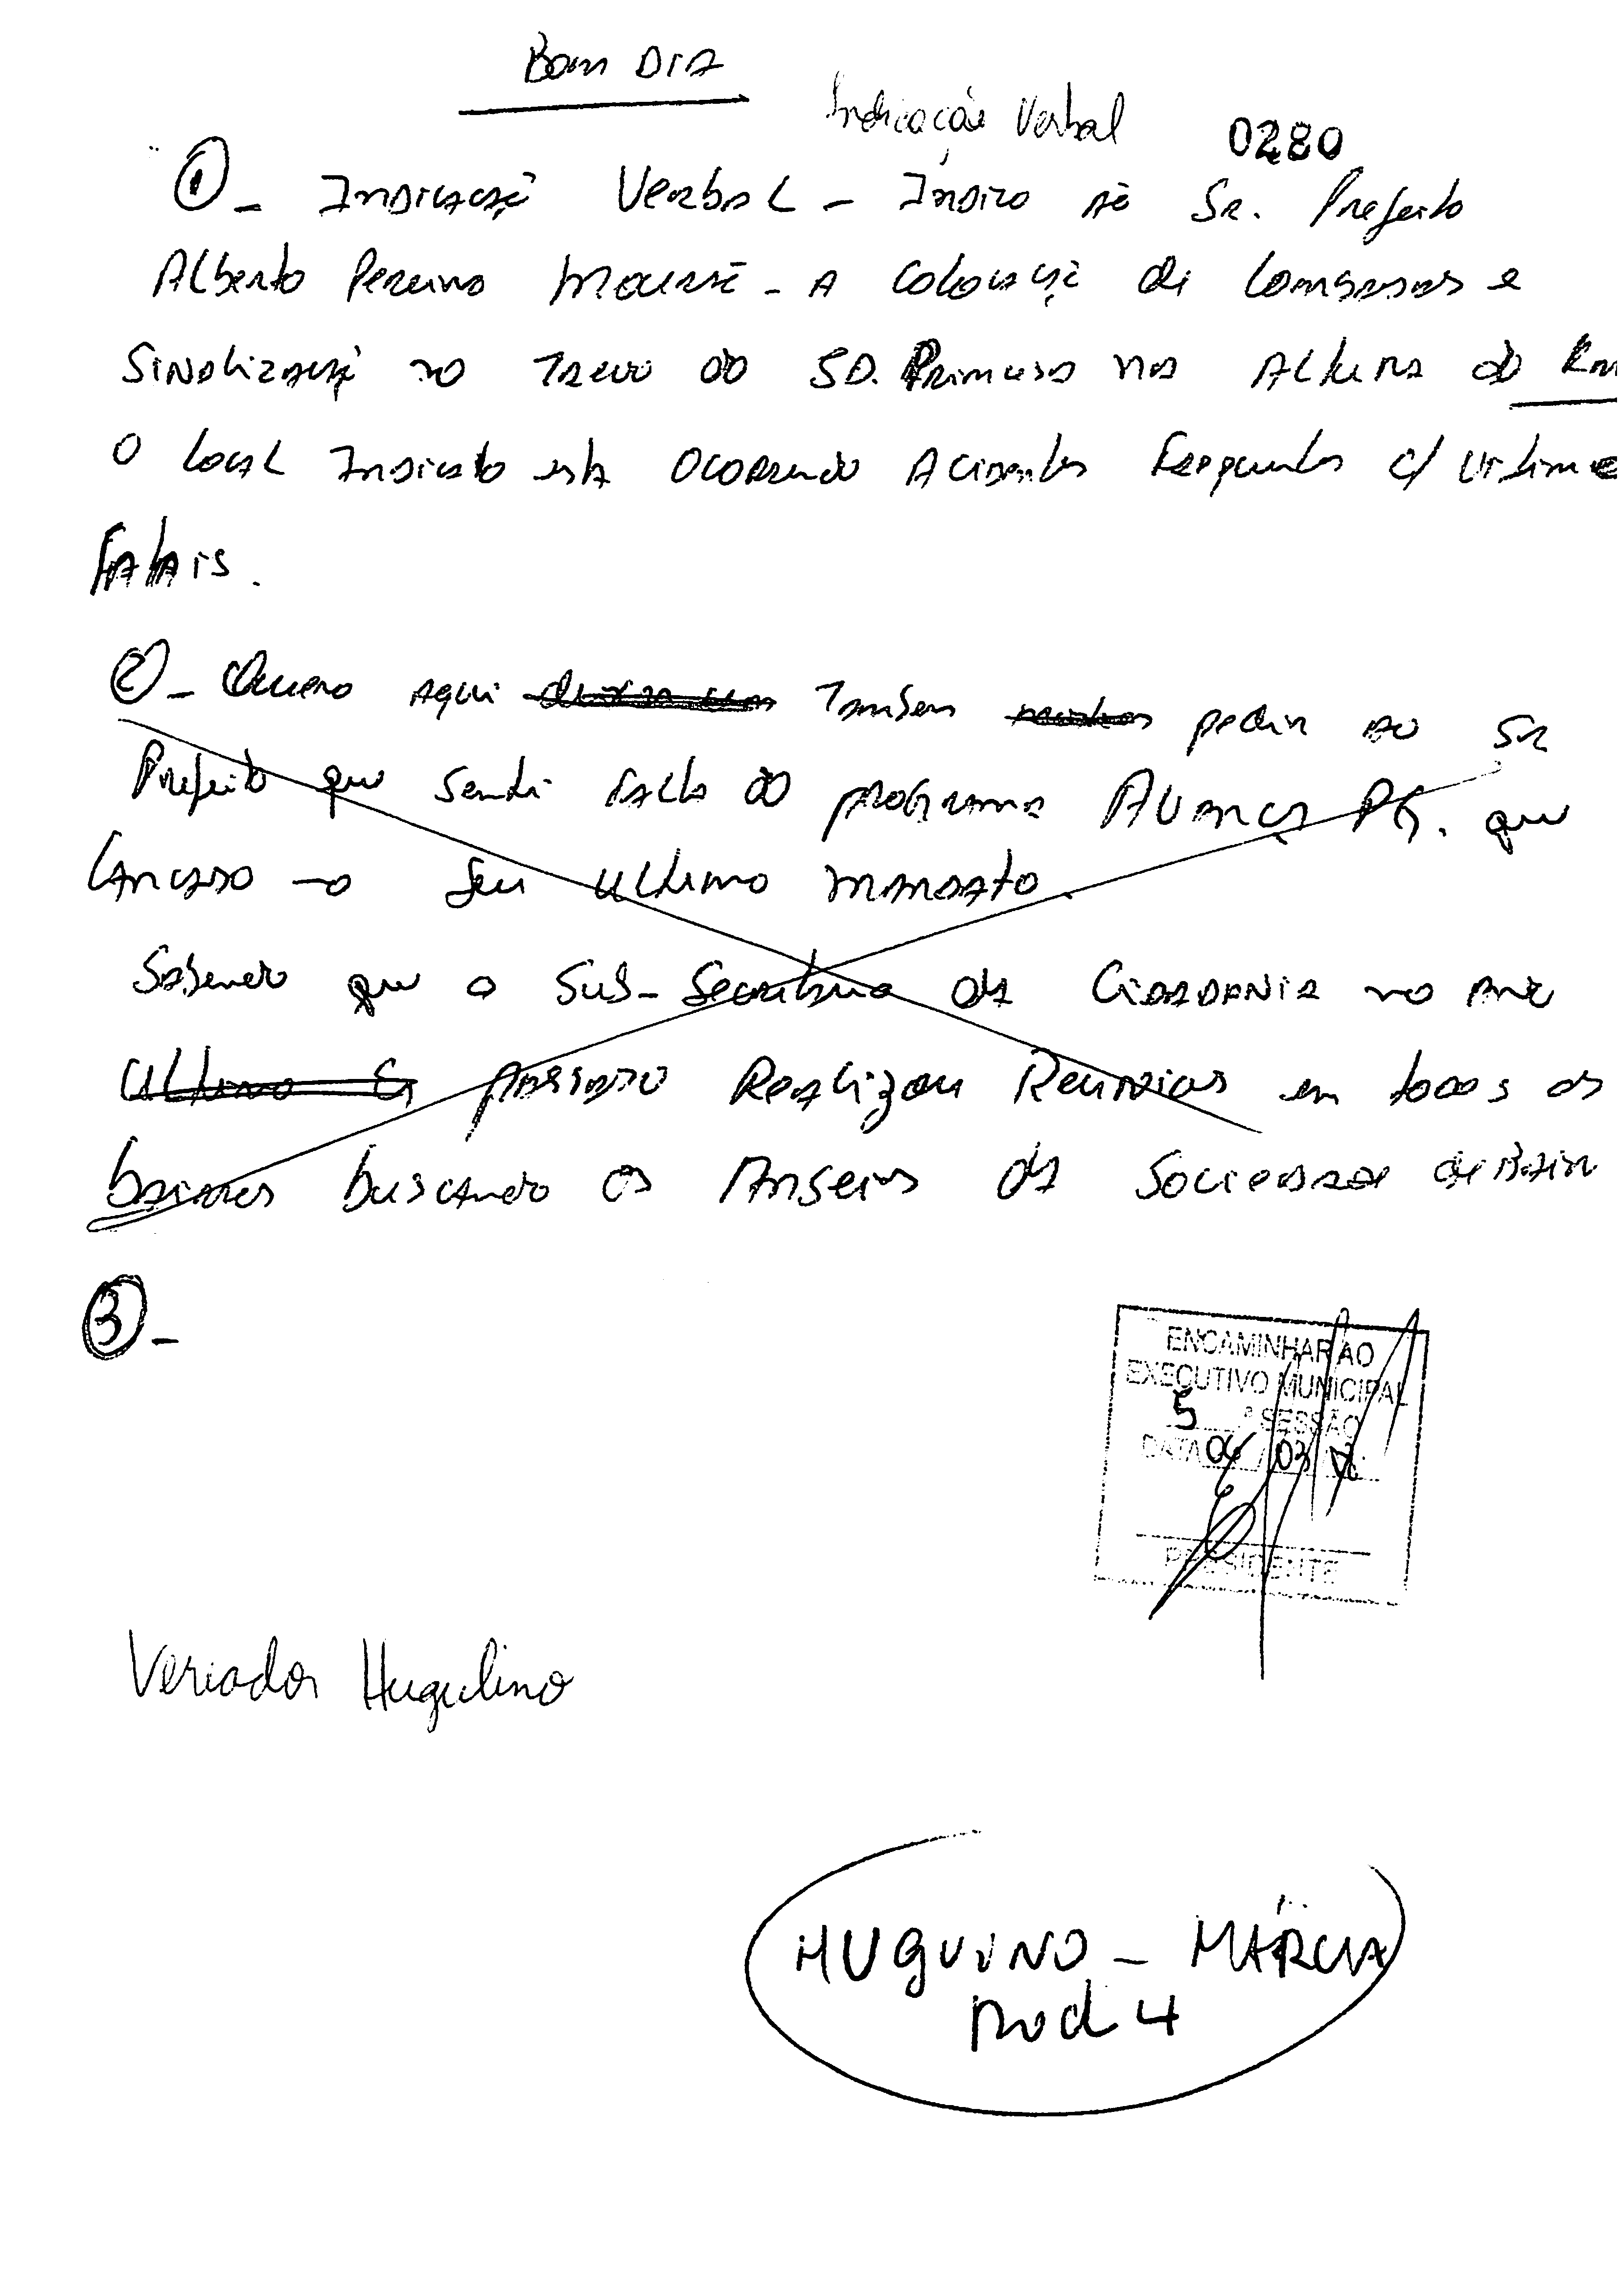 Bom DIA
Indicação Verbal 0280
① - Indicação Verbal - Indico ao Sr. Prefeito
Alberto Pereira Mourão - A Colocação de Lombadas e
Sinalização no Trevo do SD. Princesa na Altura do Km
O local Indicado está Ocorrendo Acidentes Frequentes c/ vitima
Fatais.
② - Quero aqui Também pedir ao Sr
Prefeito que senti falta do programa Avança PG. que
Lançado no seu ultimo mandato.
Sabendo que o Sub-Secretario da Cidadania no ano
ultimo passado Realizou Reuniões em todos os
bairros buscando os Anseios da Sociedade de Bairr
③ -
ENCAMINHAR AO
EXECUTIVO MUNICIPAL
5 ª SESSÃO
DATA 06 / 03
PRESIDENTE
Veriador Hugulino
HUGUINO - MÁRCIA
mod 4